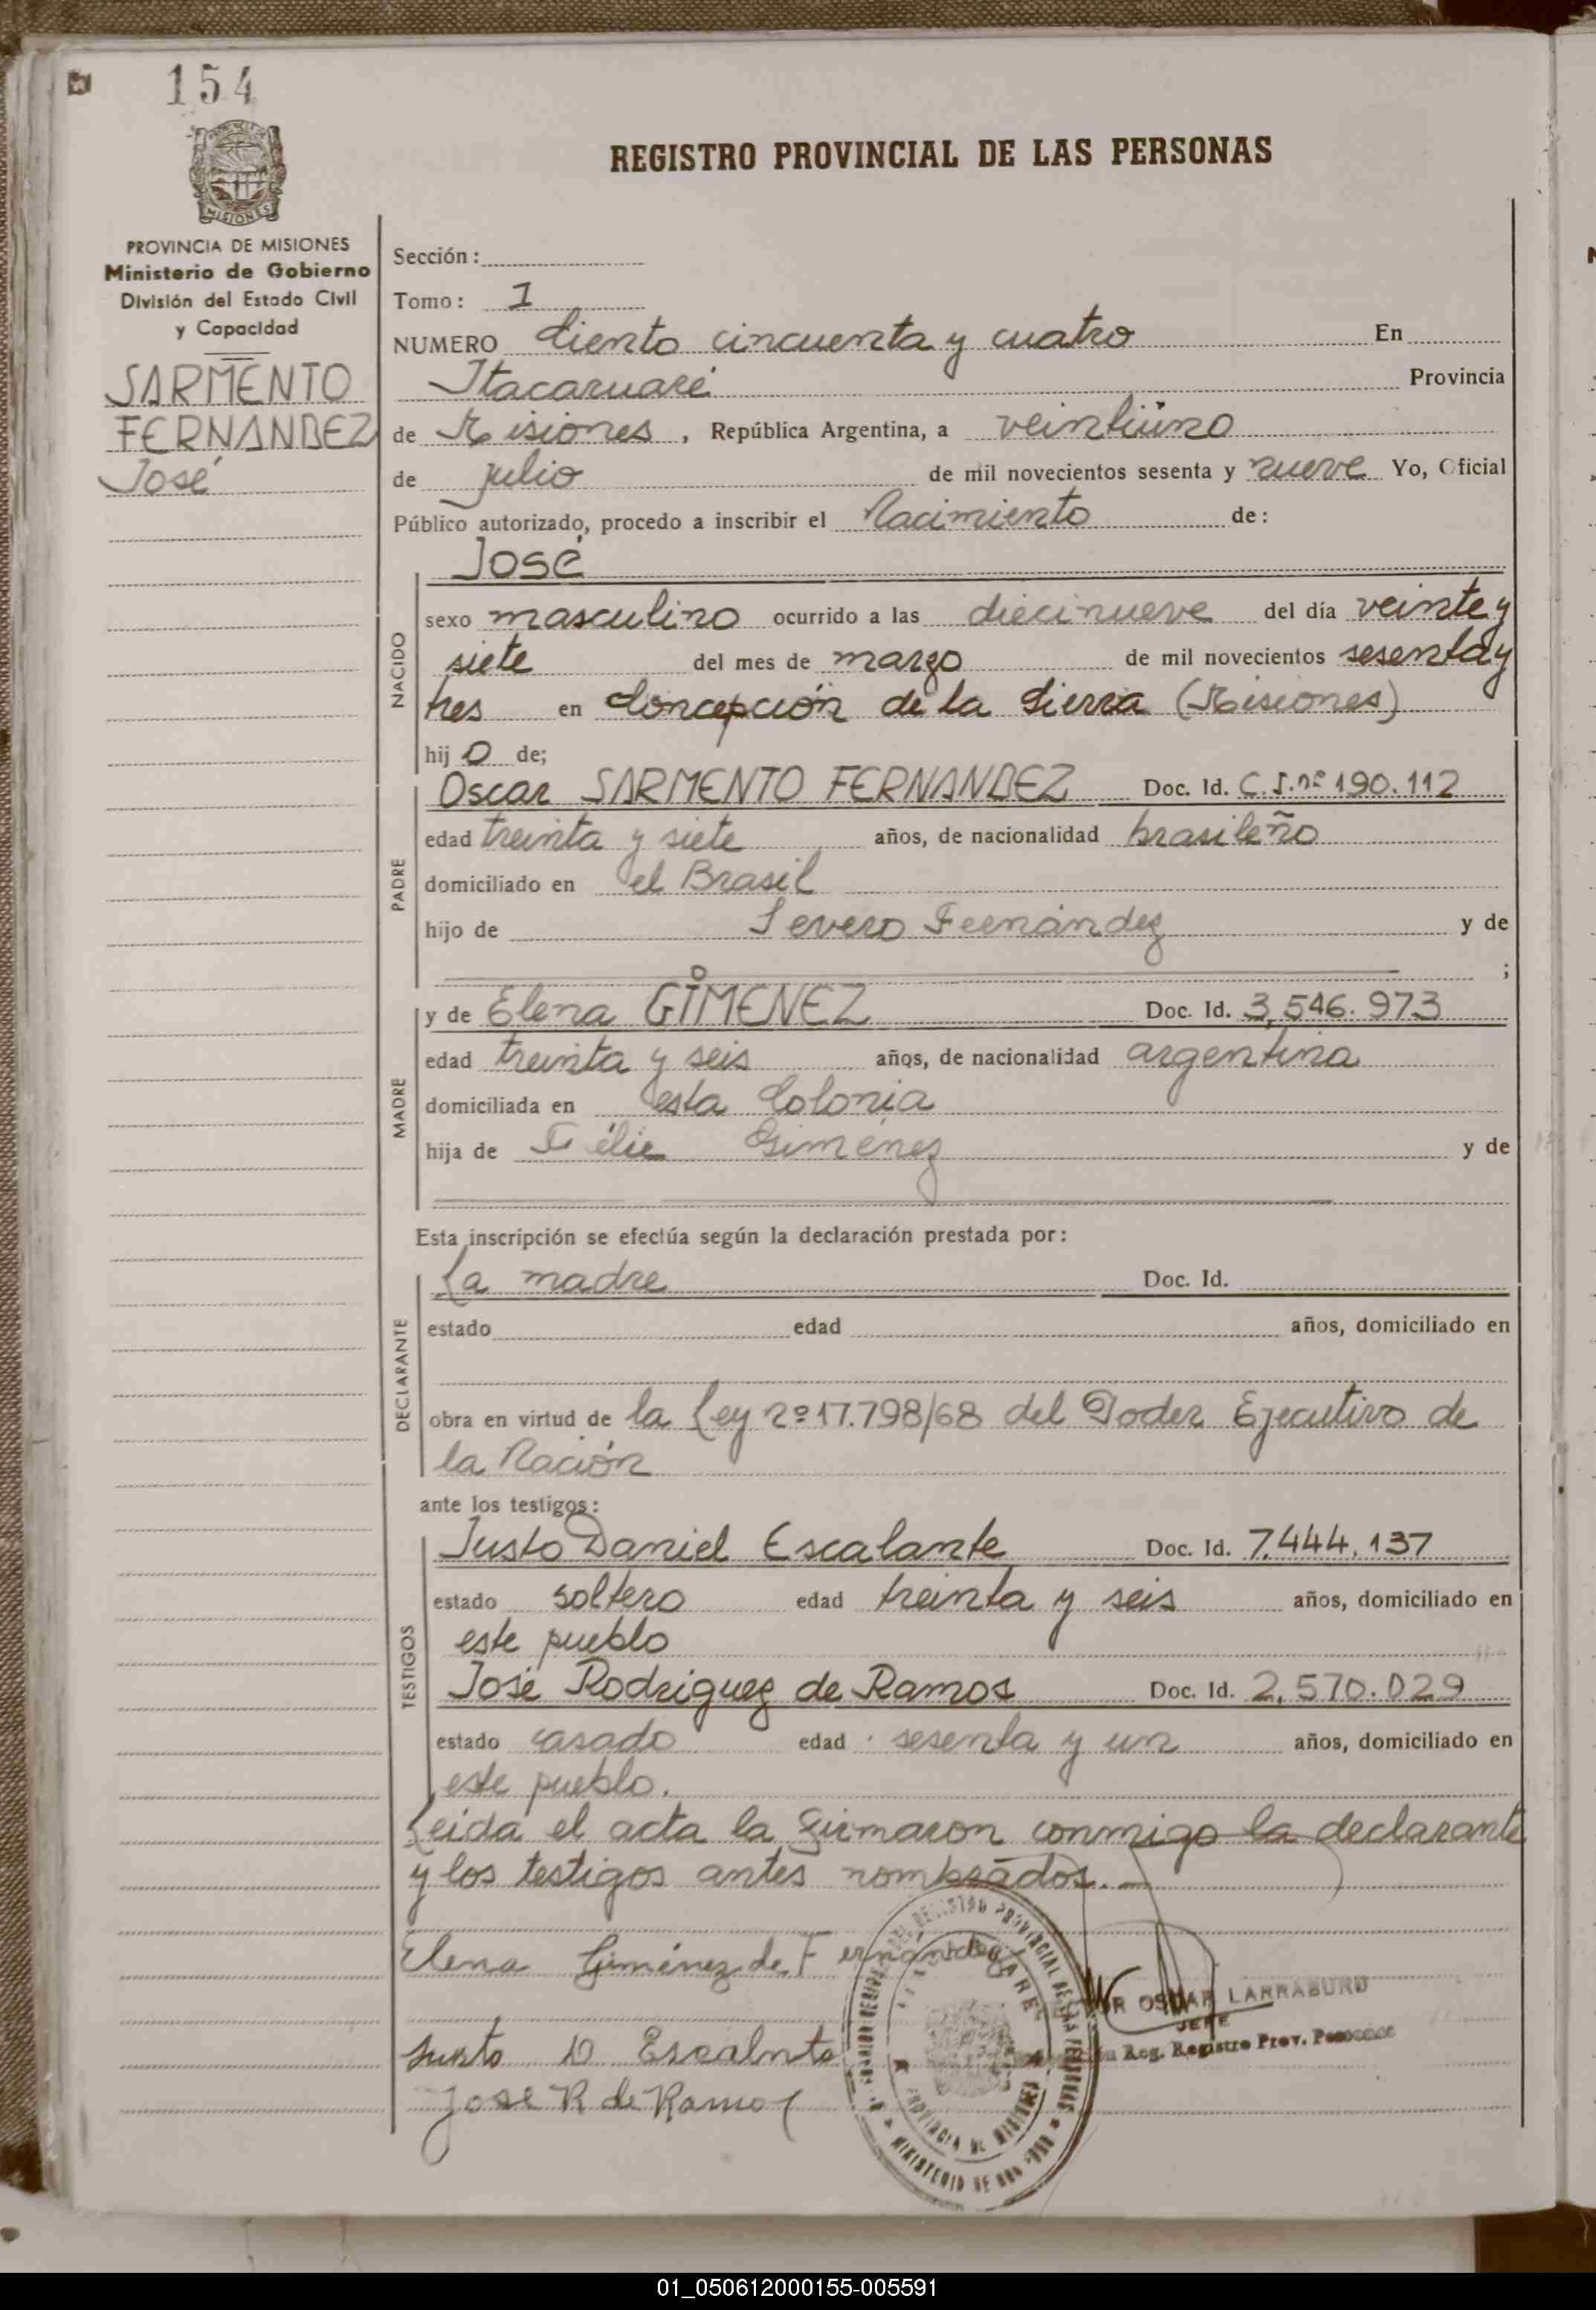 154
REGISTRO PROVINCIAL DE LAS PERSONAS
MISIONES
PROVINCIA DE MISIONES
Ministerio de Gobierno
División del Estado Civil
y Capacidad
SARMENTO
FERNANDEZ
José
Sección:
Tomo: 1
NUMERO Ciento cincuenta y cuatro En
Itacaruaré Provincia
de Misiones, República Argentina, a veintiúno
de julio de mil novecientos sesenta y nueve Yo, Oficial
Público autorizado, procedo a inscribir el Nacimiento de:
José
NACIDO
sexo masculino ocurrido a las diecinueve del día veinte y
siete del mes de marzo de mil novecientos sesenta y
tres en Concepción de la Sierra (Misiones)
hijo de;
PADRE
Oscar SARMENTO FERNANDEZ Doc. Id. C.I.nº 190.112
edad treinta y siete años, de nacionalidad brasileño
domiciliado en el Brasil
hijo de Severo Fernández y de
;
MADRE
y de Elena GIMENEZ Doc. Id. 3,546.973
edad treinta y seis años, de nacionalidad argentina
domiciliada en esta Colonia
hija de Félix Giménez y de
Esta inscripción se efectúa según la declaración prestada por:
DECLARANTE
La madre Doc. Id.
estado edad años, domiciliado en
obra en virtud de la Ley nº 17.798/68 del Poder Ejecutivo de
la Nación
ante los testigos:
TESTIGOS
Justo Daniel Escalante Doc. Id. 7.444.137
estado soltero edad treinta y seis años, domiciliado en
este pueblo
José Rodriguez de Ramos Doc. Id. 2,570.029
estado casado edad sesenta y un años, domiciliado en
este pueblo.
Leida el acta la firmaron conmigo la declarante
y los testigos antes nombrados.-
Elena Giménez de Fernández
OSCAR LARRABURU
JEFE
Reg. Registro Prov. Personas
Justo D Escalnte
Jose R de Ramos
REGISTRO PROVINCIAL DE LAS PERSONAS
PROVINCIA DE MISIONES
MINISTERIO DE GOB
01_050612000155-005591